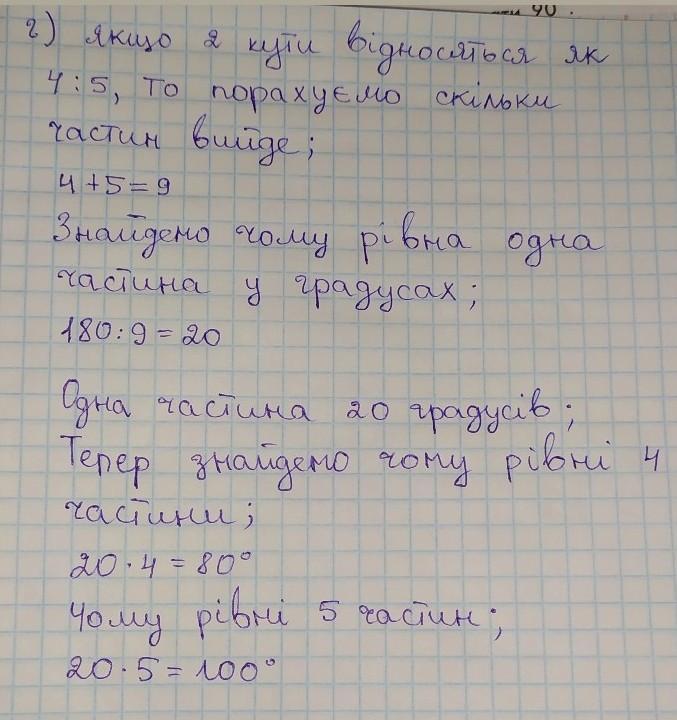 г) якщо 2 кути відносяться як
4 : 5, то порахуємо скільки
частин вийде;
4 + 5 = 9
Знайдемо чому рівна одна
частина у градусах;
180 : 9 = 20
Одна частина 20 градусів;
Тепер знайдемо чому рівні 4
частини;
20 · 4 = 80°
Чому рівні 5 частин;
20 · 5 = 100°